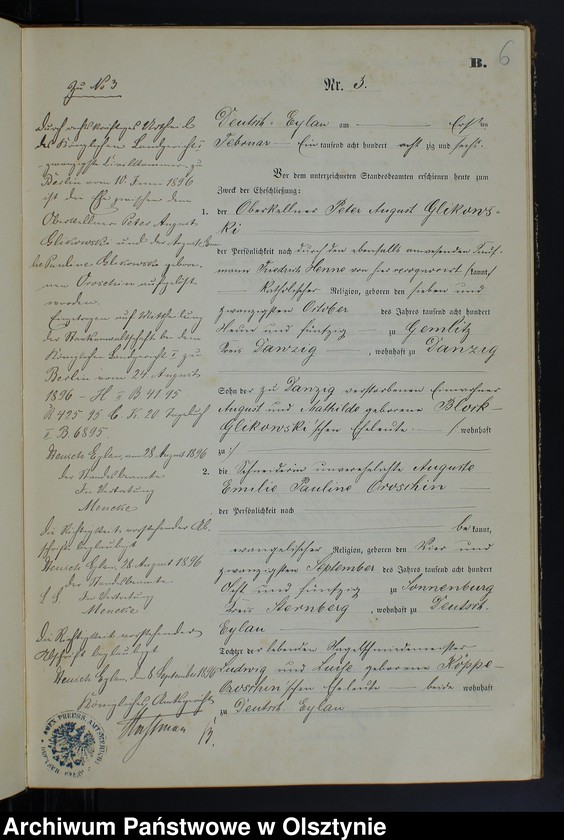 B. 6
Nr. 3.
Zu No 3
Durch rechtskräftiges Urtheil
des Königlichen Landgerichts
Civilkammer zu
Berlin vom 10 Juni 1896
ist die Ehe zwischen dem
Oberkellner Peter August
Glikowski und der Auguste Emi-
lie Pauline Glikowski gebore-
nen Oroschin aufgelöst
worden.
Eingetragen auf Mittheilung
der Staatsanwaltschaft bei dem
Königlichen Landgericht I zu
Berlin vom 24. August
1896
I. B. 6895.
Deutsch Eylau, am 28 August 1896
der Standesbeamte
In Vertretung
Mencke
Die Richtigkeit vorstehender Ab-
schrift beglaubigt
Deutsch Eylau, 28 August 1896
der Standesbeamte
In Vertretung
Mencke
Die Richtigkeit vorstehender
Abschrift beglaubigt
Deutsch Eylau, den 8 September 1896
Königliches Amtsgericht
Deutsch. Eylau am Ersten
Februar Ein tausend acht hundert acht zig und sechs.
Vor dem unterzeichneten Standesbeamten erschienen heute zum
Zweck der Eheschließung:
1. der Oberkellner Peter August Glikows-
ki
der Persönlichkeit nach durch den ebenfalls anwesenden Kauf-
mann Friedrich Henne von hier kannt,
Katholischer Religion, geboren den sieben und
zwanzigsten October des Jahres tausend acht hundert
Neun und fünfzig zu Gemlitz
Kreis Danzig, wohnhaft zu Danzig
Sohn der zu Danzig verstorbenen Einwohner
August und Mathilde geborene Block-
Glikowski'schen Eheleute wohnhaft
zu
2. die Schneiderin unverehelichte Auguste
Emilie Pauline Oroschin
der Persönlichkeit nach
be kannt,
evangelischer Religion, geboren den Vier und
zwanzigsten September des Jahres tausend acht hundert
Acht und fünfzig zu Sonnenburg
Kreis Sternberg, wohnhaft zu Deutsch.
Eylau
Tochter der lebenden
Ludwig und Luise geborene Köppe-
Oroschin'schen Eheleute beide wohnhaft
zu Deutsch. Eylau
Archiwum Państwowe w Olsztynie